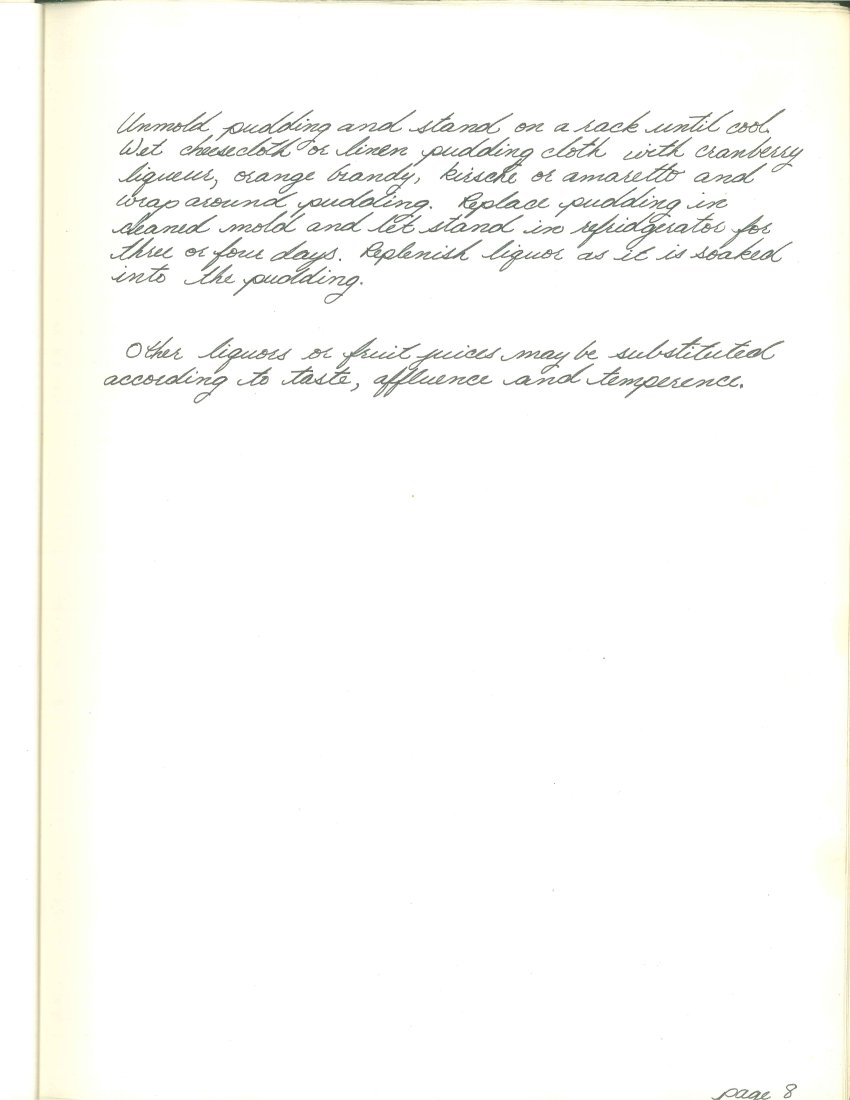 Unmold pudding and stand on a rack until cool.
Wet cheesecloth or linen pudding cloth with cranberry
liqueur, orange brandy, kirsche or amaretto and
wrap around pudding. Replace pudding in
cleaned mold and let stand in refridgerator for
three or four days. Replenish liquor as it is soaked
into the pudding.
Other liquors or fruit juices may be substituted
according to taste, affluence and temperence.
page 8